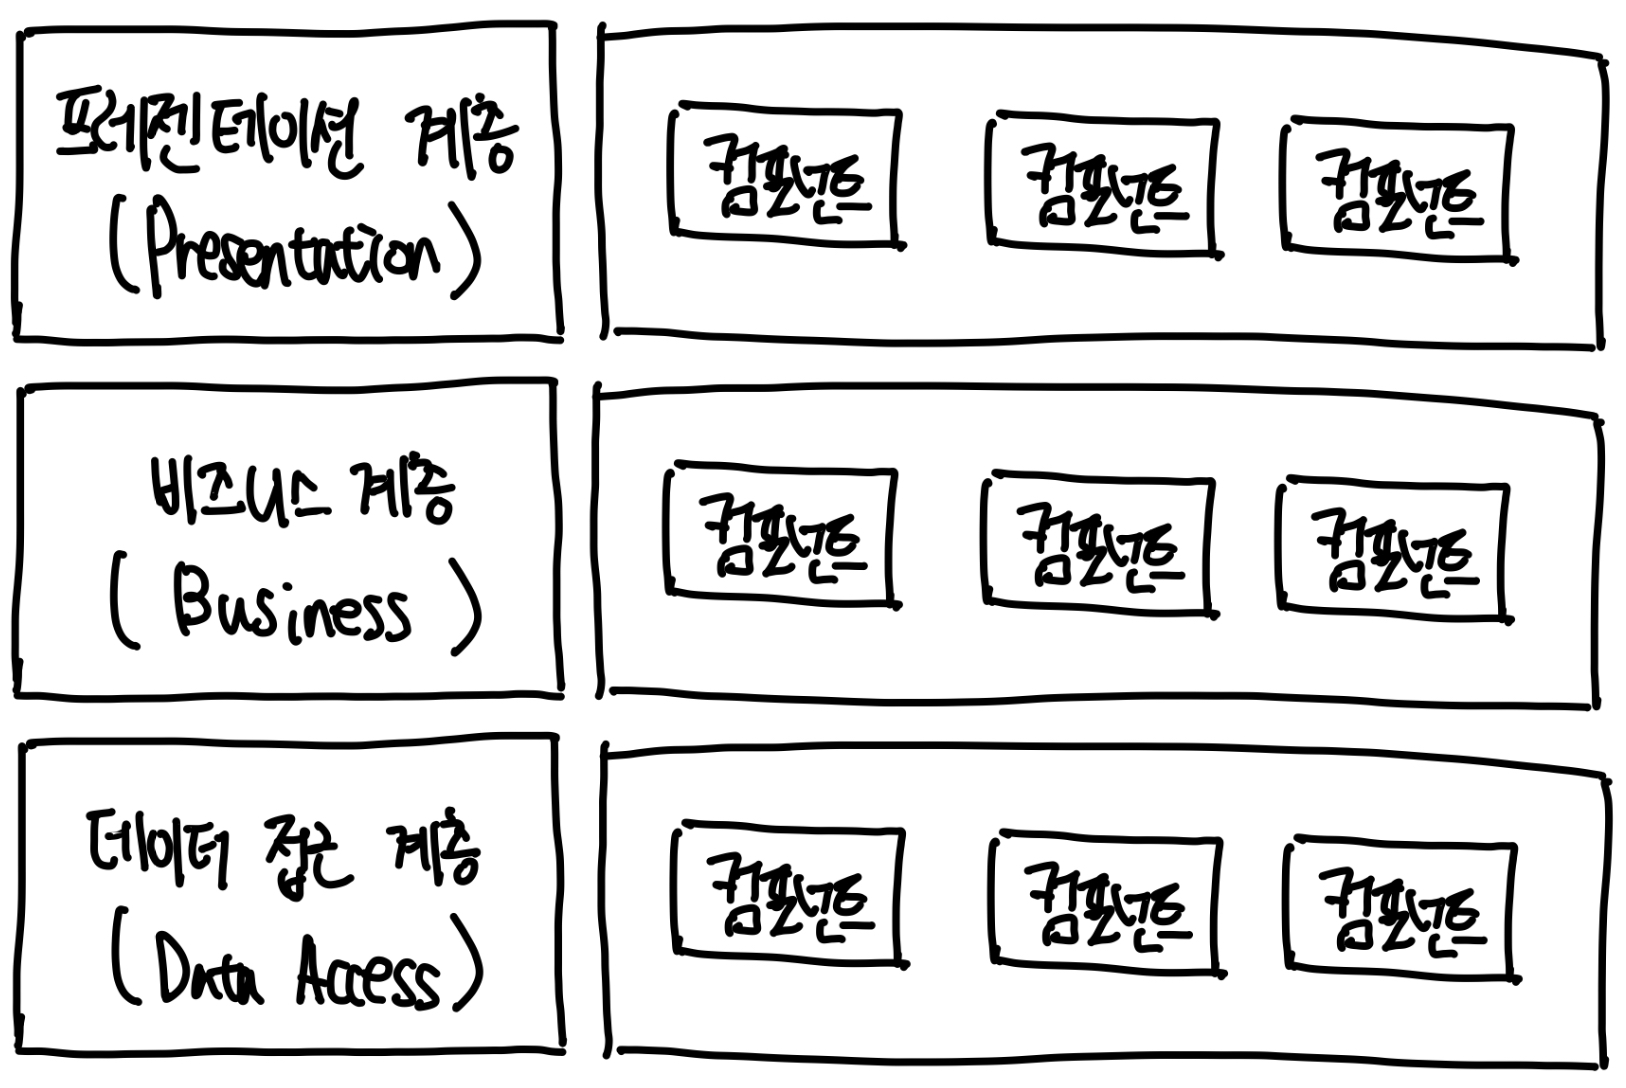 프레젠테이션 계층
(Presentation)
컴포넌트 컴포넌트 컴포넌트
비즈니스 계층
(Business)
컴포넌트 컴포넌트 컴포넌트
데이터 접근 계층
(Data Access)
컴포넌트 컴포넌트 컴포넌트